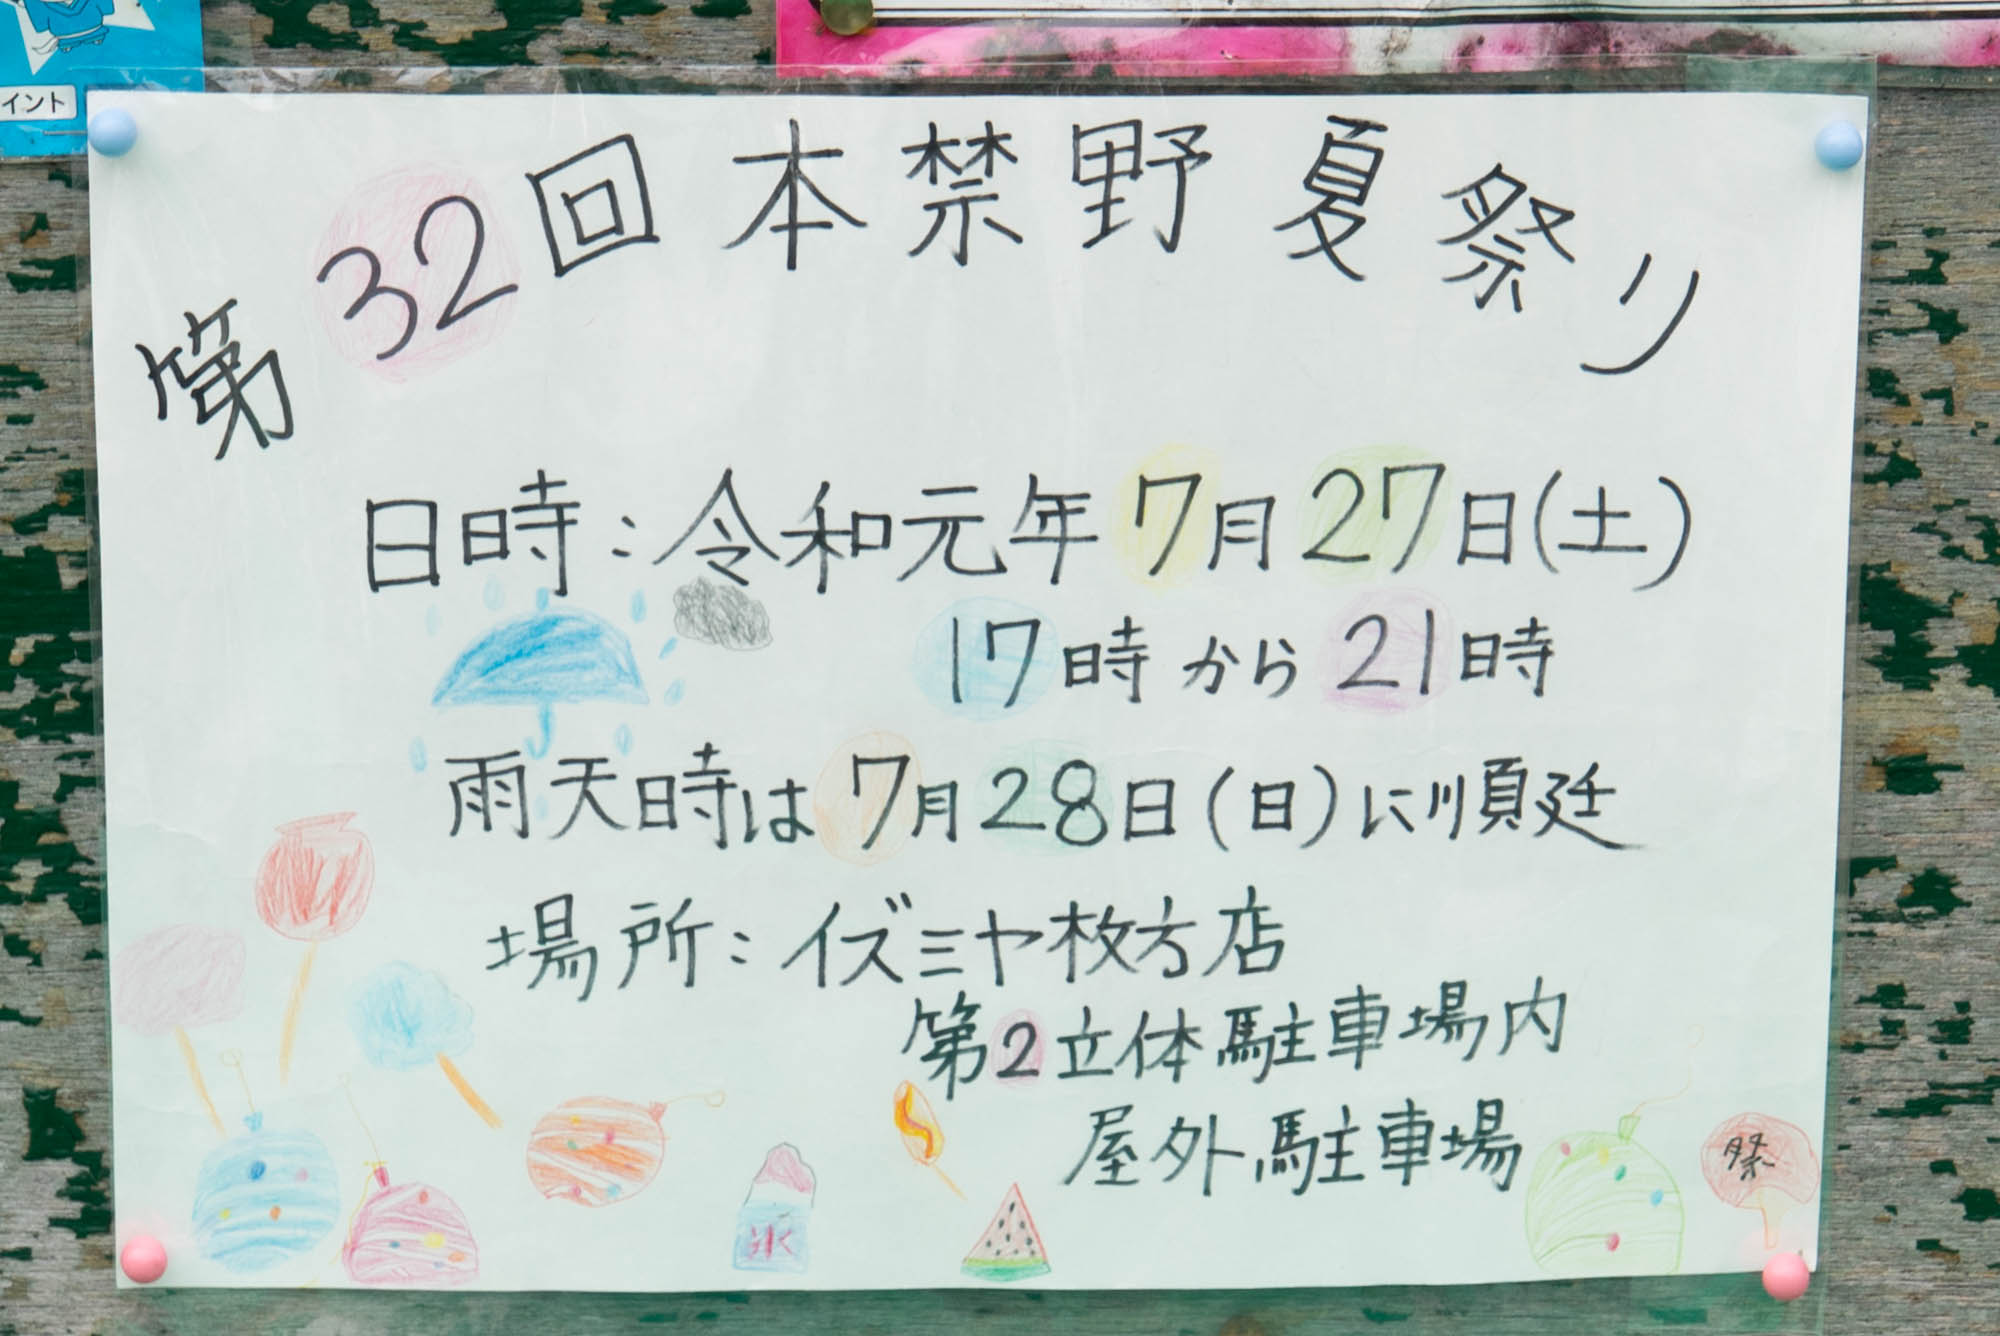 イント
第32回本禁野夏祭り
日時:令和元年7月27日(土)
17時から21時
雨天時は7月28日(日)に順廷
場所:イズミヤ枚方店
第2立体駐車場内
屋外駐車場
氷
祭